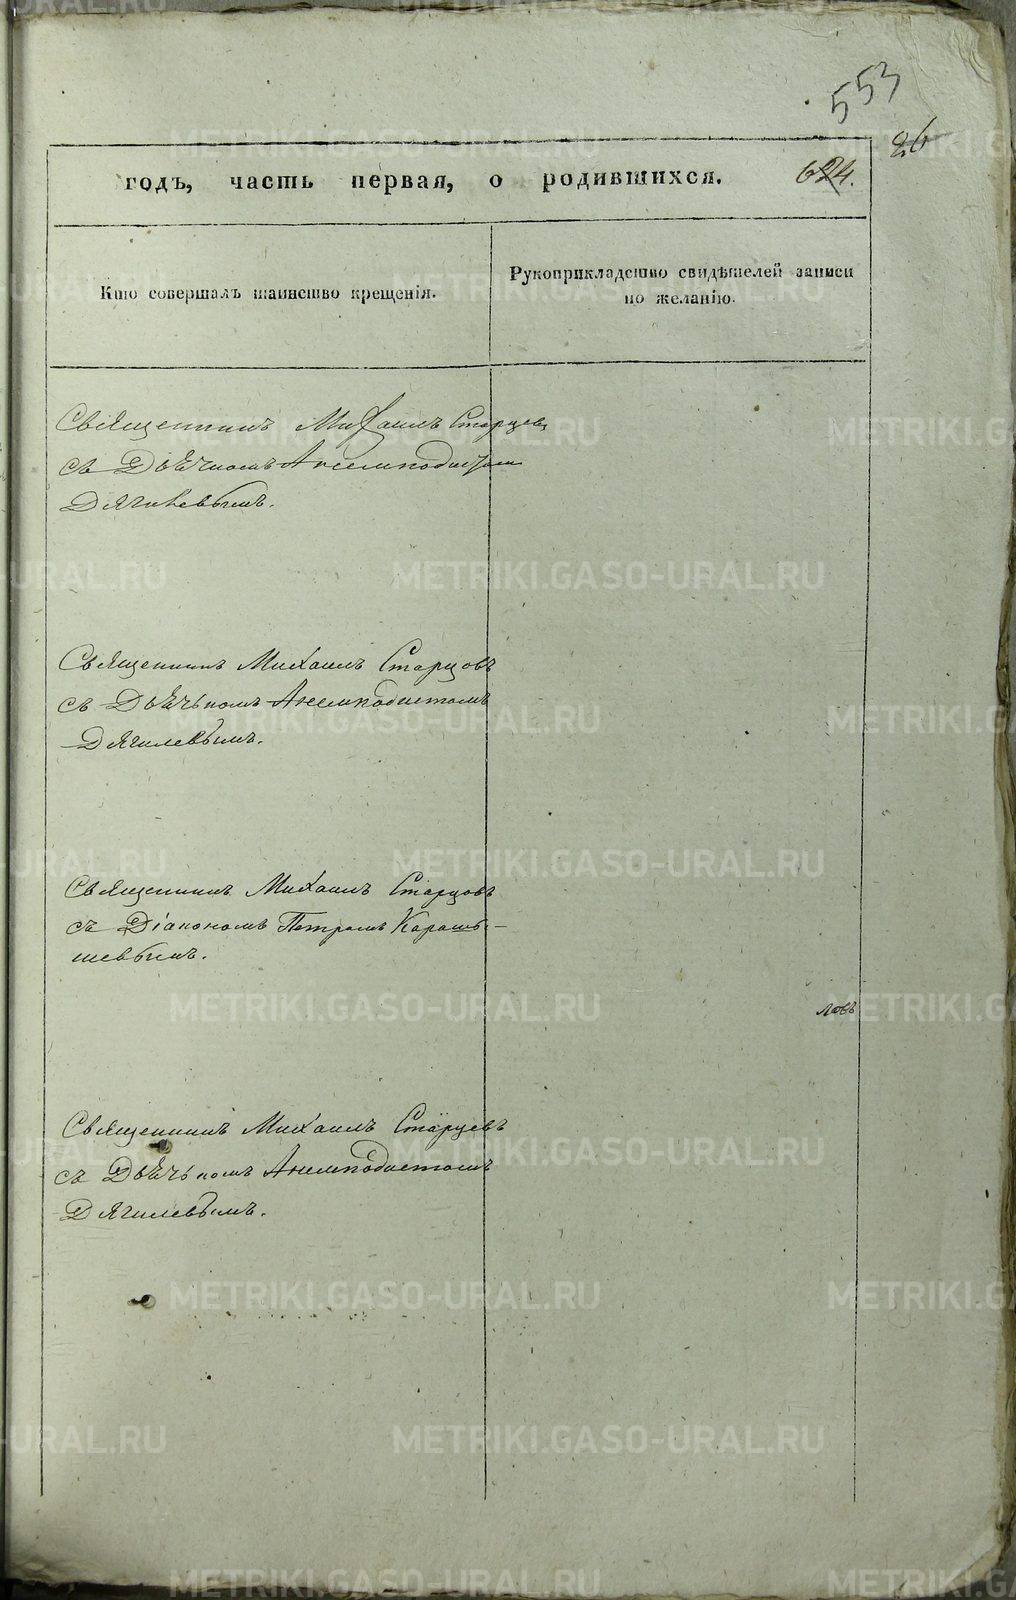 553
26
годъ, часть первая, о родившихся.
624.
Кто совершалъ таинство крещенія.
Рукоприкладство свидѣтелей записи
по желанію.
Священникъ Михаилъ Старцевъ
съ Дьячкомъ Анемподистомъ
Дягилевымъ.
Священникъ Михаилъ Старцовъ
съ Дьячькомъ Анемподистомъ
Дягилевымъ.
Священникъ Михаилъ Старцовъ
съ Діакономъ Петромъ Карашы-
шевымъ.
ловъ
Священникъ Михаилъ Старцевъ
съ Дьячькомъ Анемподистомъ
Дягилевымъ.
METRIKI.GASO-URAL.RU